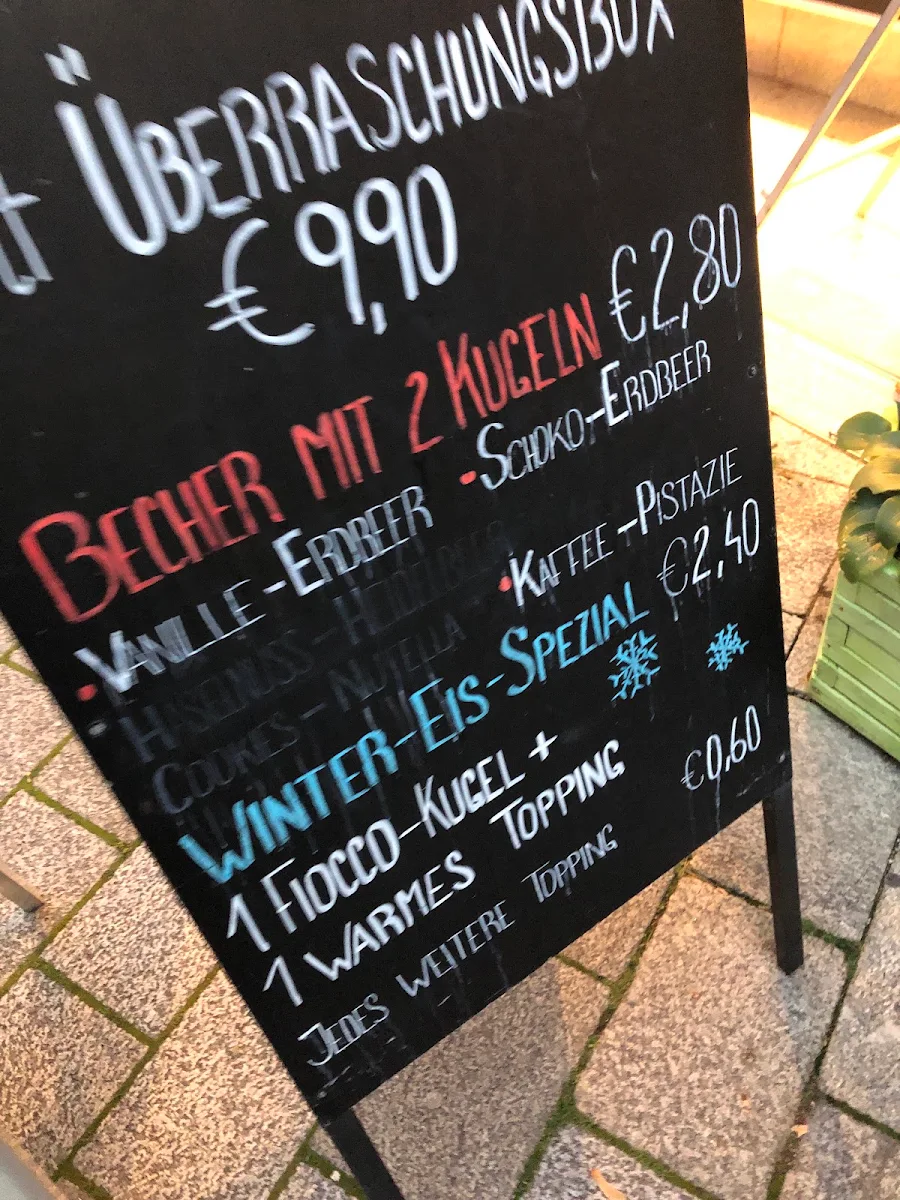 ÜBERRASCHUNGSBOX
€ 9,90
BECHER MIT 2 KUGELN €2,80
• VANILLE-ERDBEER • SCHOKO-ERDBEER
HASELNUSS-HEIDELBEER • KAFFEE-PISTAZIE
COOKIES-NUTELLA
WINTER-EIS-SPEZIAL €2,40
1 FIOCCO-KUGEL +
1 WARMES TOPPING
JEDES WEITERE TOPPING €0,60